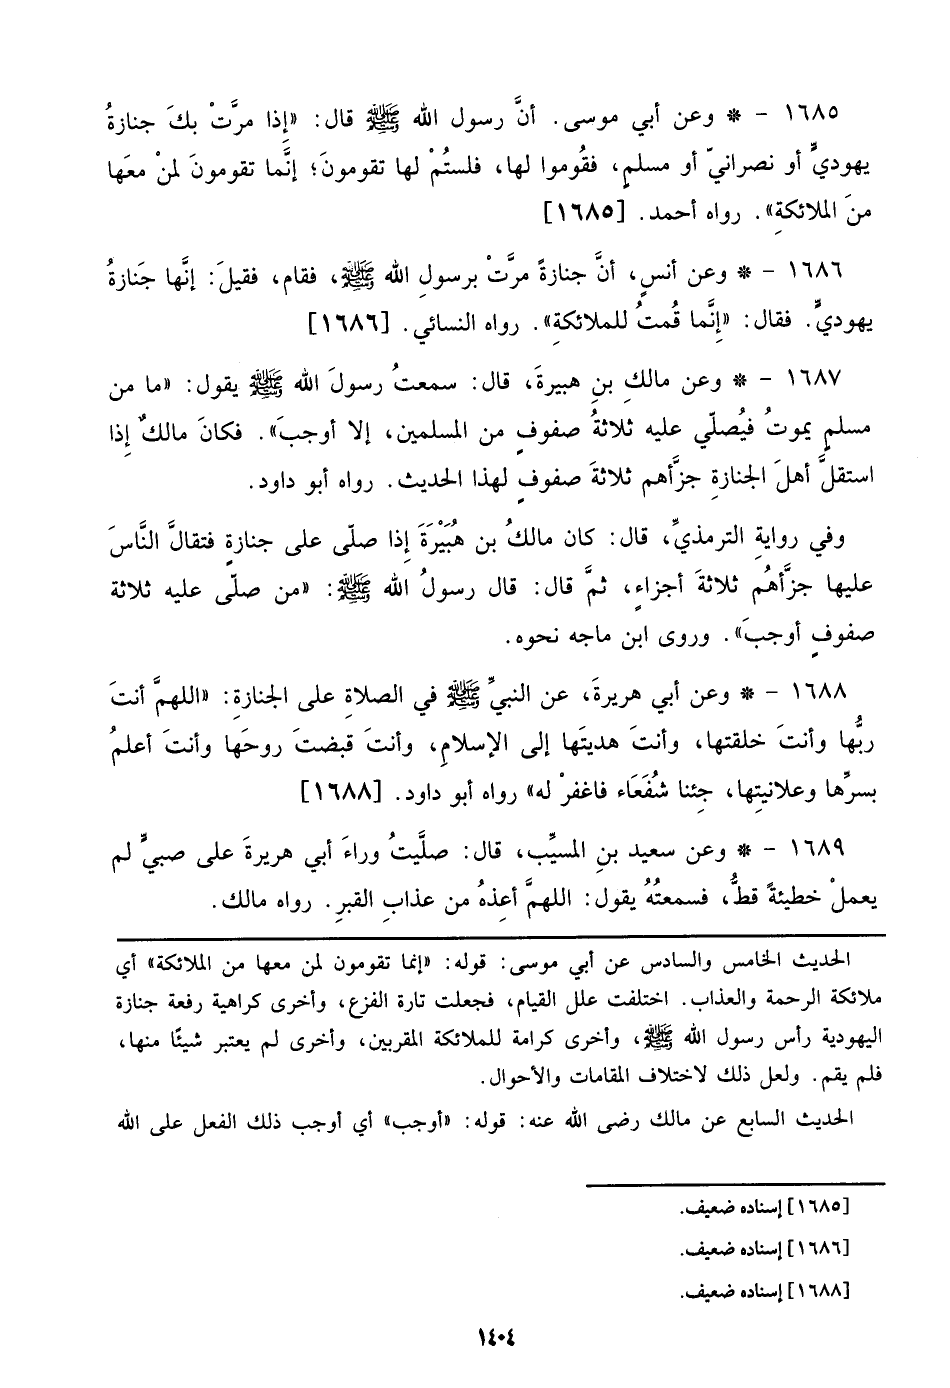 ١٦٨٥ - * وعن أبي موسى. أنَّ رسول الله ﷺ قال: «إذا مرَّتْ بكَ جنازةُ
يهوديٍّ أو نصرانيّ أو مسلمٍ، فقُوموا لها، فلستُمْ لها تقومونَ؛ إنَّما تقومونَ لمنْ معَها
منَ الملائكةِ». رواه أحمد. [١٦٨٥]
١٦٨٦ - * وعن أنسٍ، أنَّ جنازةً مرَّتْ برسولِ الله ﷺ، فقام، فقيلَ: إنَّها جَنازةُ
يهوديٍّ. فقال: «إنَّما قُمتُ للملائكةِ». رواه النسائي. [١٦٨٦]
١٦٨٧ - * وعن مالكِ بنِ هبيرةَ، قال: سمعتُ رسولَ الله ﷺ يقول: «ما من
مسلمٍ يموتُ فيُصلّي عليه ثلاثةُ صفوفٍ من المسلمين، إلا أوجبَ». فكانَ مالكٌ إذا
استقلَّ أهلَ الجنازةِ جزَّأهم ثلاثةَ صفوفٍ لهذا الحديث. رواه أبو داود.
وفي روايةِ الترمذيِّ، قال: كان مالكُ بن هُبَيْرَةَ إذا صلّى على جنازةٍ فتقالَّ النَّاسَ
عليها جزَّأهُم ثلاثةَ أجزاءٍ، ثمَّ قال: قال رسولُ الله ﷺ: «من صلّى عليه ثلاثة
صفوفٍ أوجبَ». وروى ابن ماجه نحوه.
١٦٨٨ - * وعن أبي هريرةَ، عن النبيِّ ﷺ في الصلاةِ على الجنازةِ: «اللهمَّ أنتَ
ربُّها وأنتَ خلقتها، وأنتَ هديتَها إلى الإسلامِ، وأنتَ قبضتَ روحَها وأنتَ أعلمُ
بسرِّها وعلانيتِها، جِئنا شُفَعَاء فاغفرْ له» رواه أبو داود. [١٦٨٨]
١٦٨٩ - * وعن سعيد بنِ المسيِّب، قال: صلَّيتُ وراءَ أبي هريرةَ على صبيٍّ لم
يعملْ خطيئةً قطُّ، فسمعتُهُ يقول: اللهمَّ أعِذهُ من عذابِ القبرِ. رواه مالك.
الحديث الخامس والسادس عن أبي موسى: قوله: «إنما تقومون لمن معها من الملائكة» أي
ملائكة الرحمة والعذاب. اختلفت علل القيام، فجعلت تارة الفزع، وأخرى كراهية رفعة جنازة
اليهودية رأس رسول الله ﷺ، وأخرى كرامة للملائكة المقربين، وأخرى لم يعتبر شيئًا منها،
فلم يقم. ولعل ذلك لاختلاف المقامات والأحوال.
الحديث السابع عن مالك رضى الله عنه: قوله: «أوجب» أي أوجب ذلك الفعل على الله
[١٦٨٥] إسناده ضعيف.
[١٦٨٦] إسناده ضعيف.
[١٦٨٨] إسناده ضعيف.
١٤٠٤